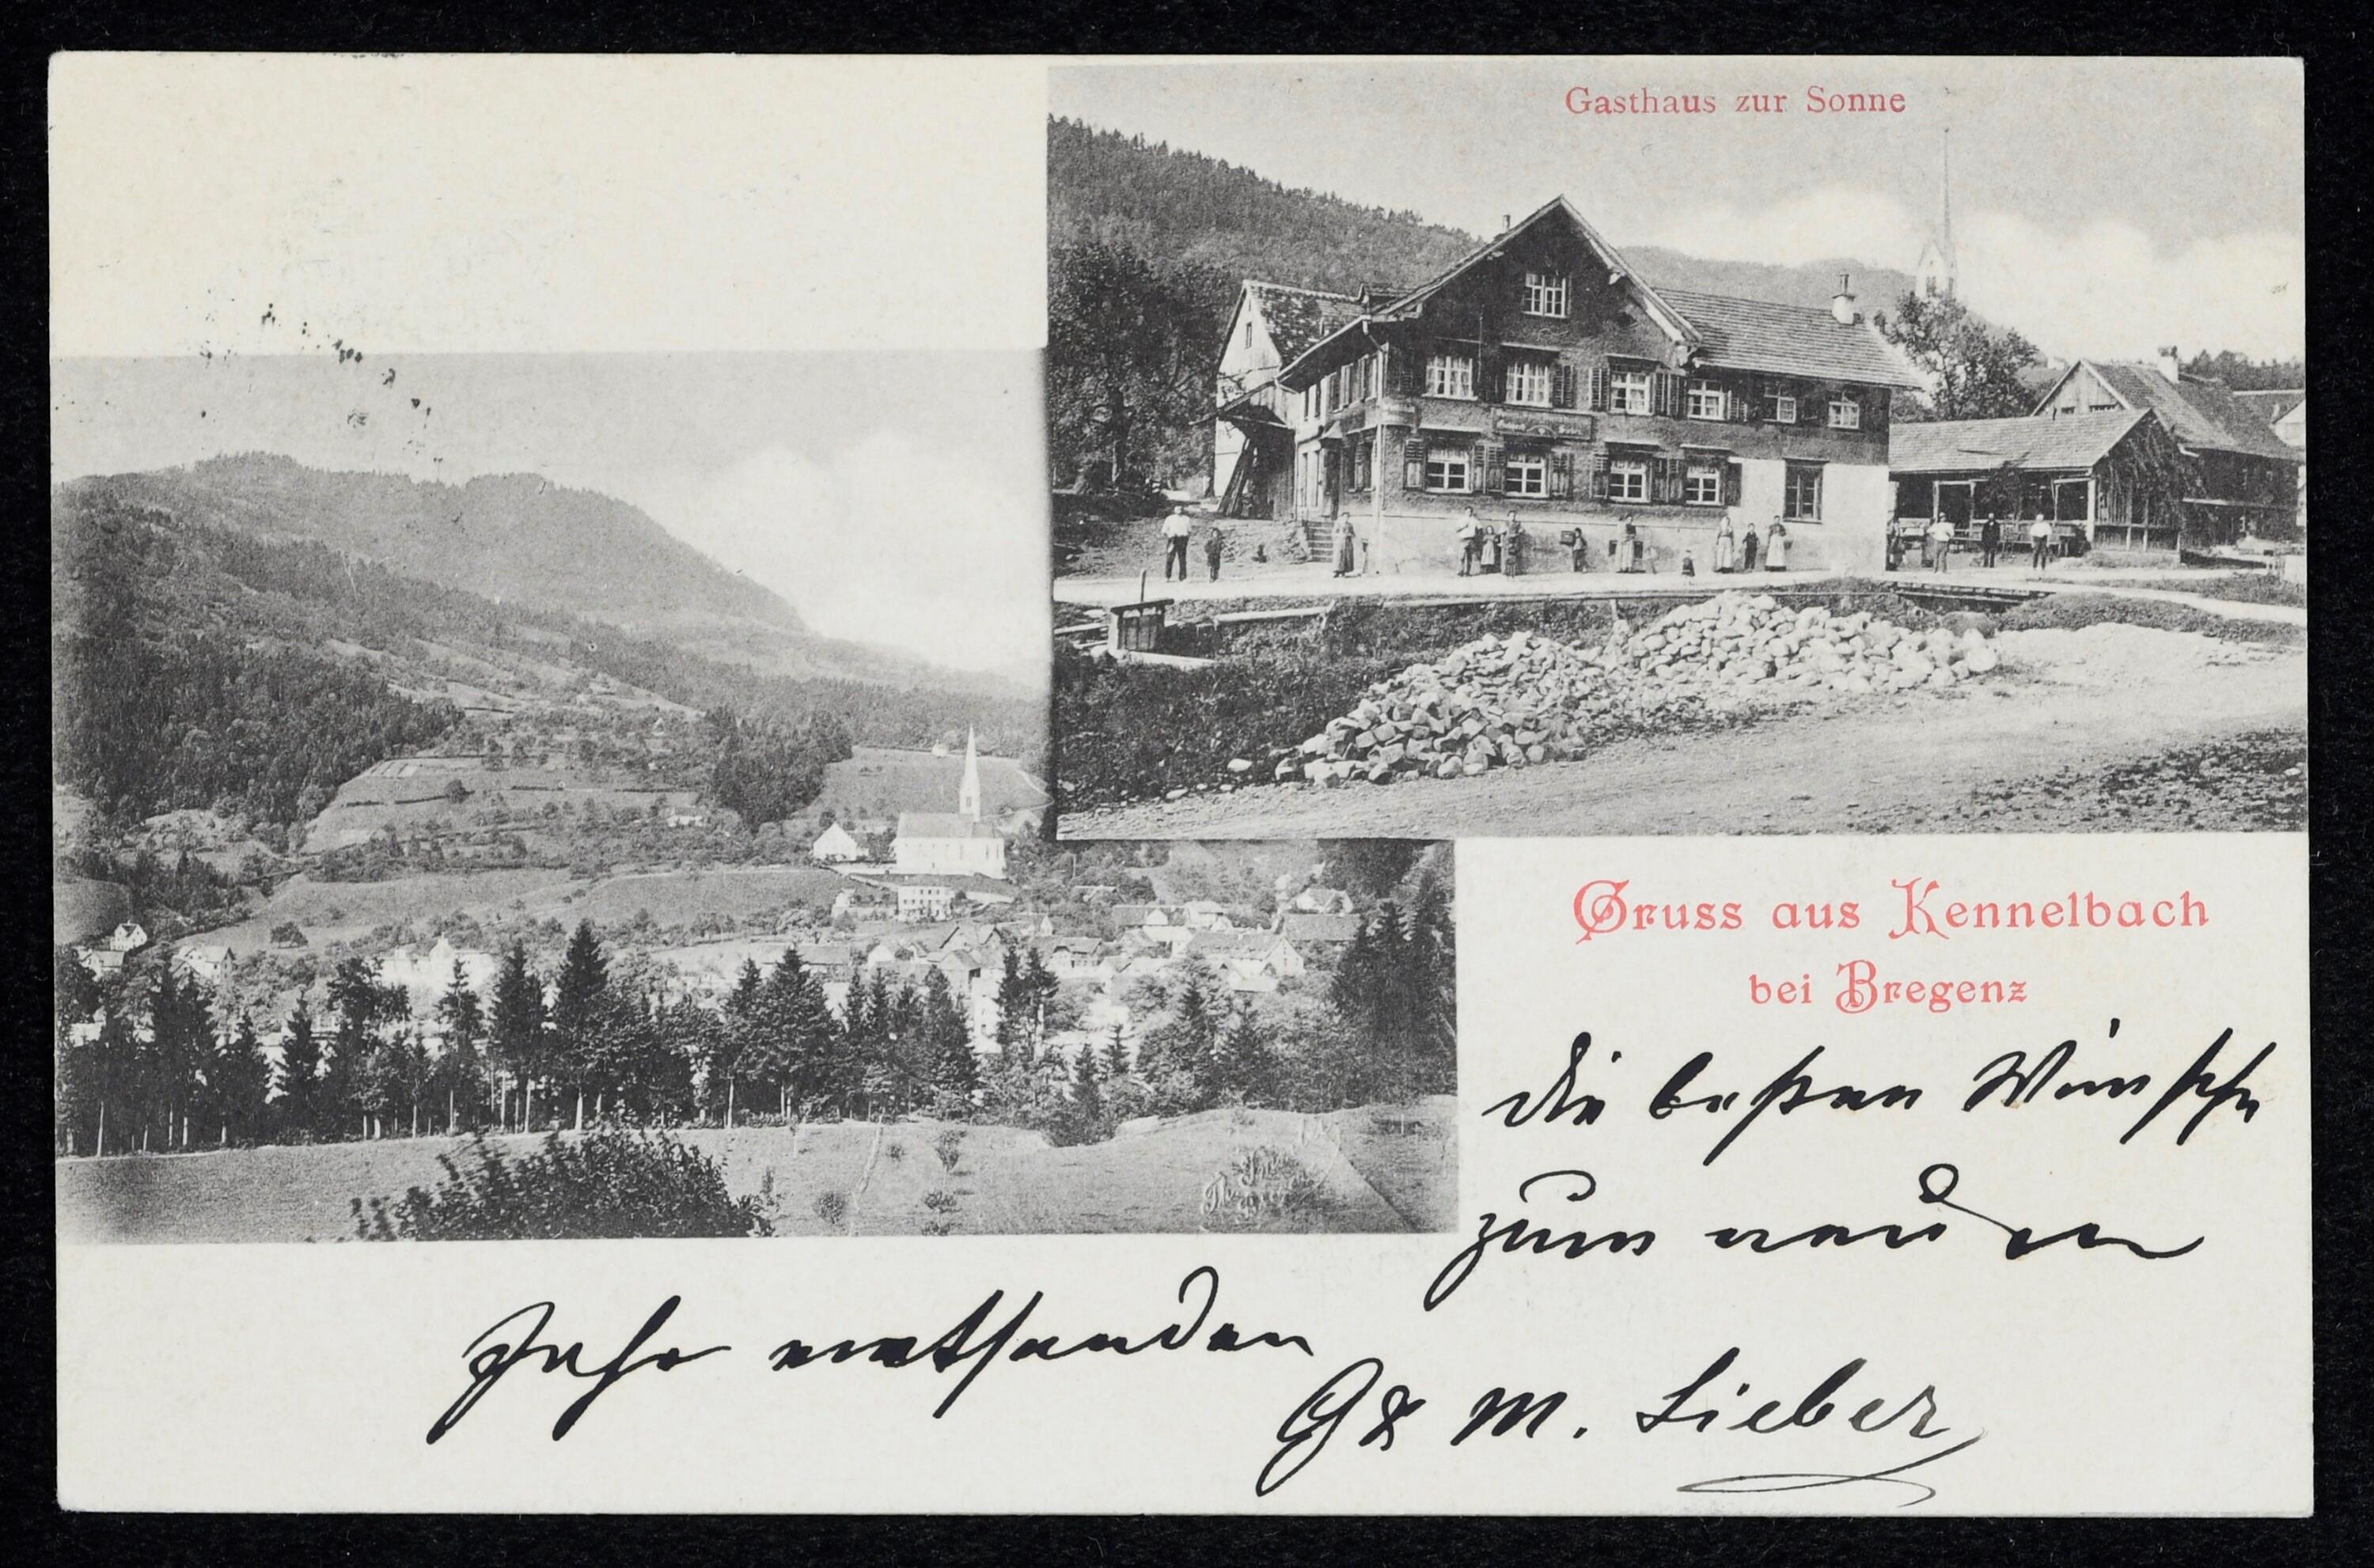 Gasthaus zur Sonne
Gruss aus Kennelbach
bei Bregenz
die besten Wünsche
zum neuen
Jahr entsenden
G & M. Lieber